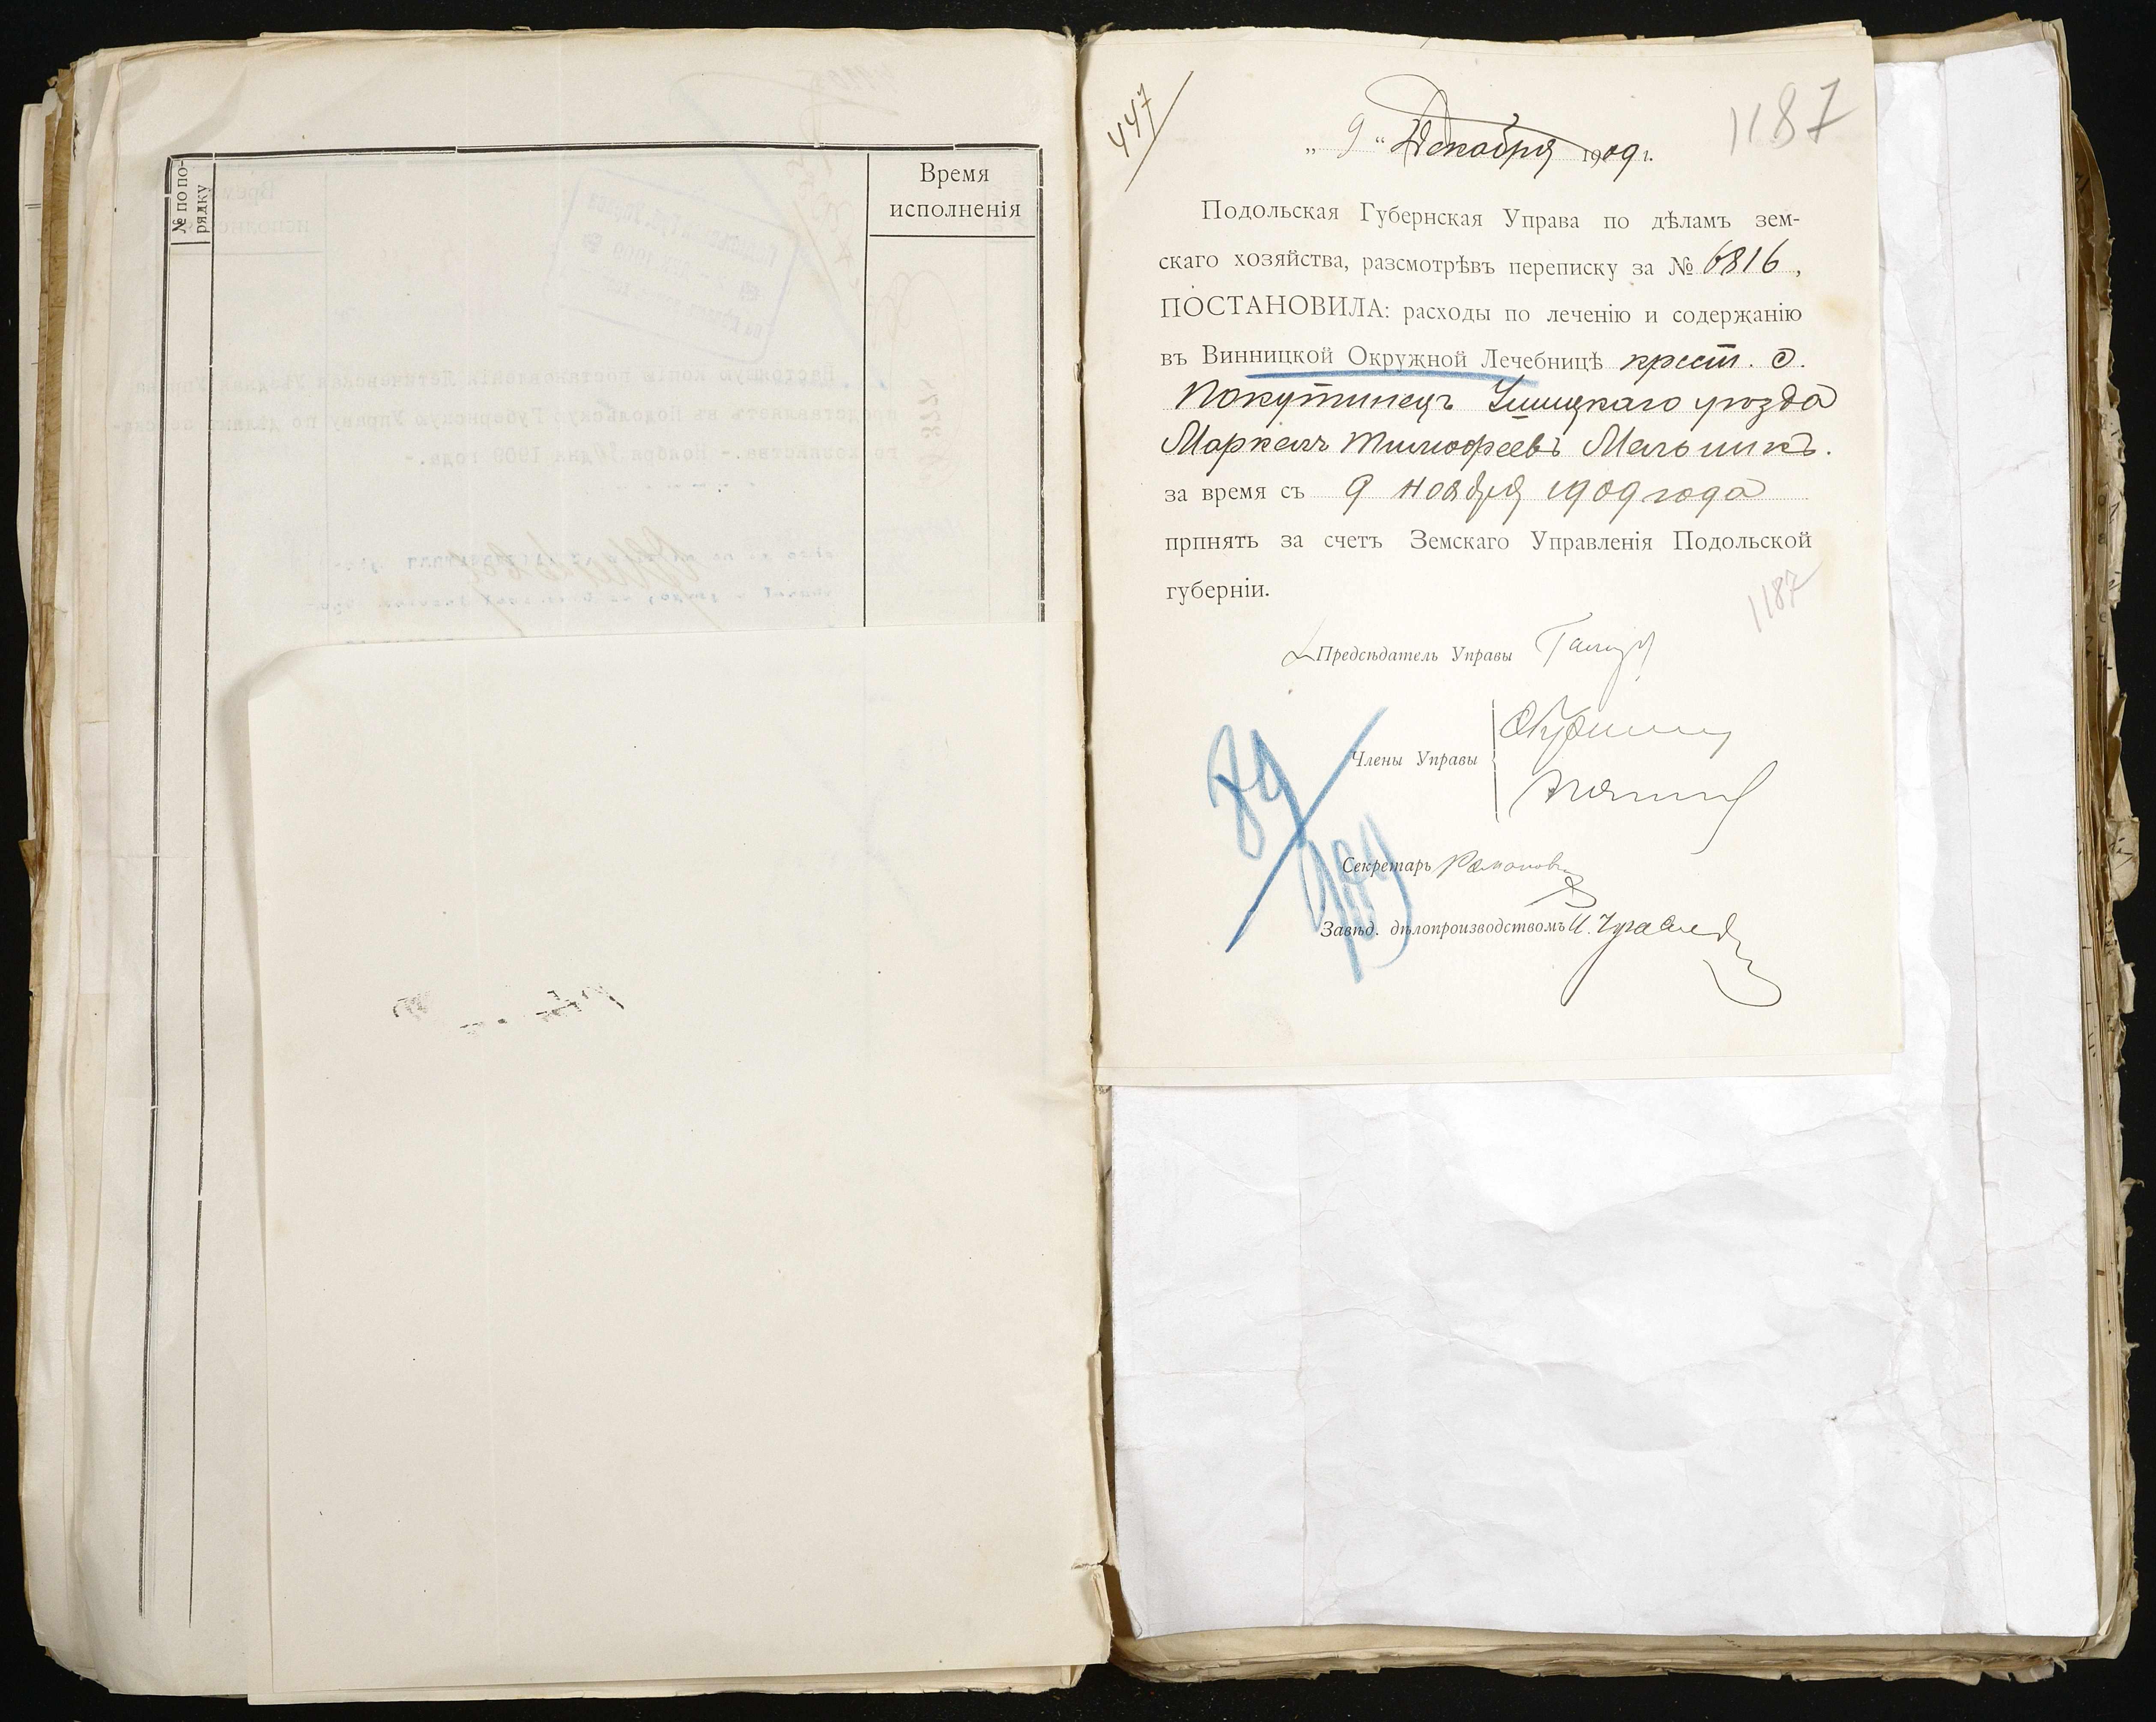 № по по-
рядку
Время
исполненія
447
1187
„ 9 “ Декабря 1909 г.
Подольская Губернская Управа по дѣламъ зем-
скаго хозяйства, разсмотрѣвъ переписку за № 6816,
ПОСТАНОВИЛА: расходы по леченію и содержанію
въ Винницкой Окружной Лечебницѣ крест. с.
Покутинецъ Ушицкаго уѣзда
Маркелъ Тимофеевъ Мельникъ.
за время съ 9 ноября 1909 года
прпнять за счетъ Земскаго Управленія Подольской
губерніи.
1187
Предсѣдатель Управы
Члены Управы
89
Секретарь Романович
Завѣд. дѣлопроизводствомъ И.